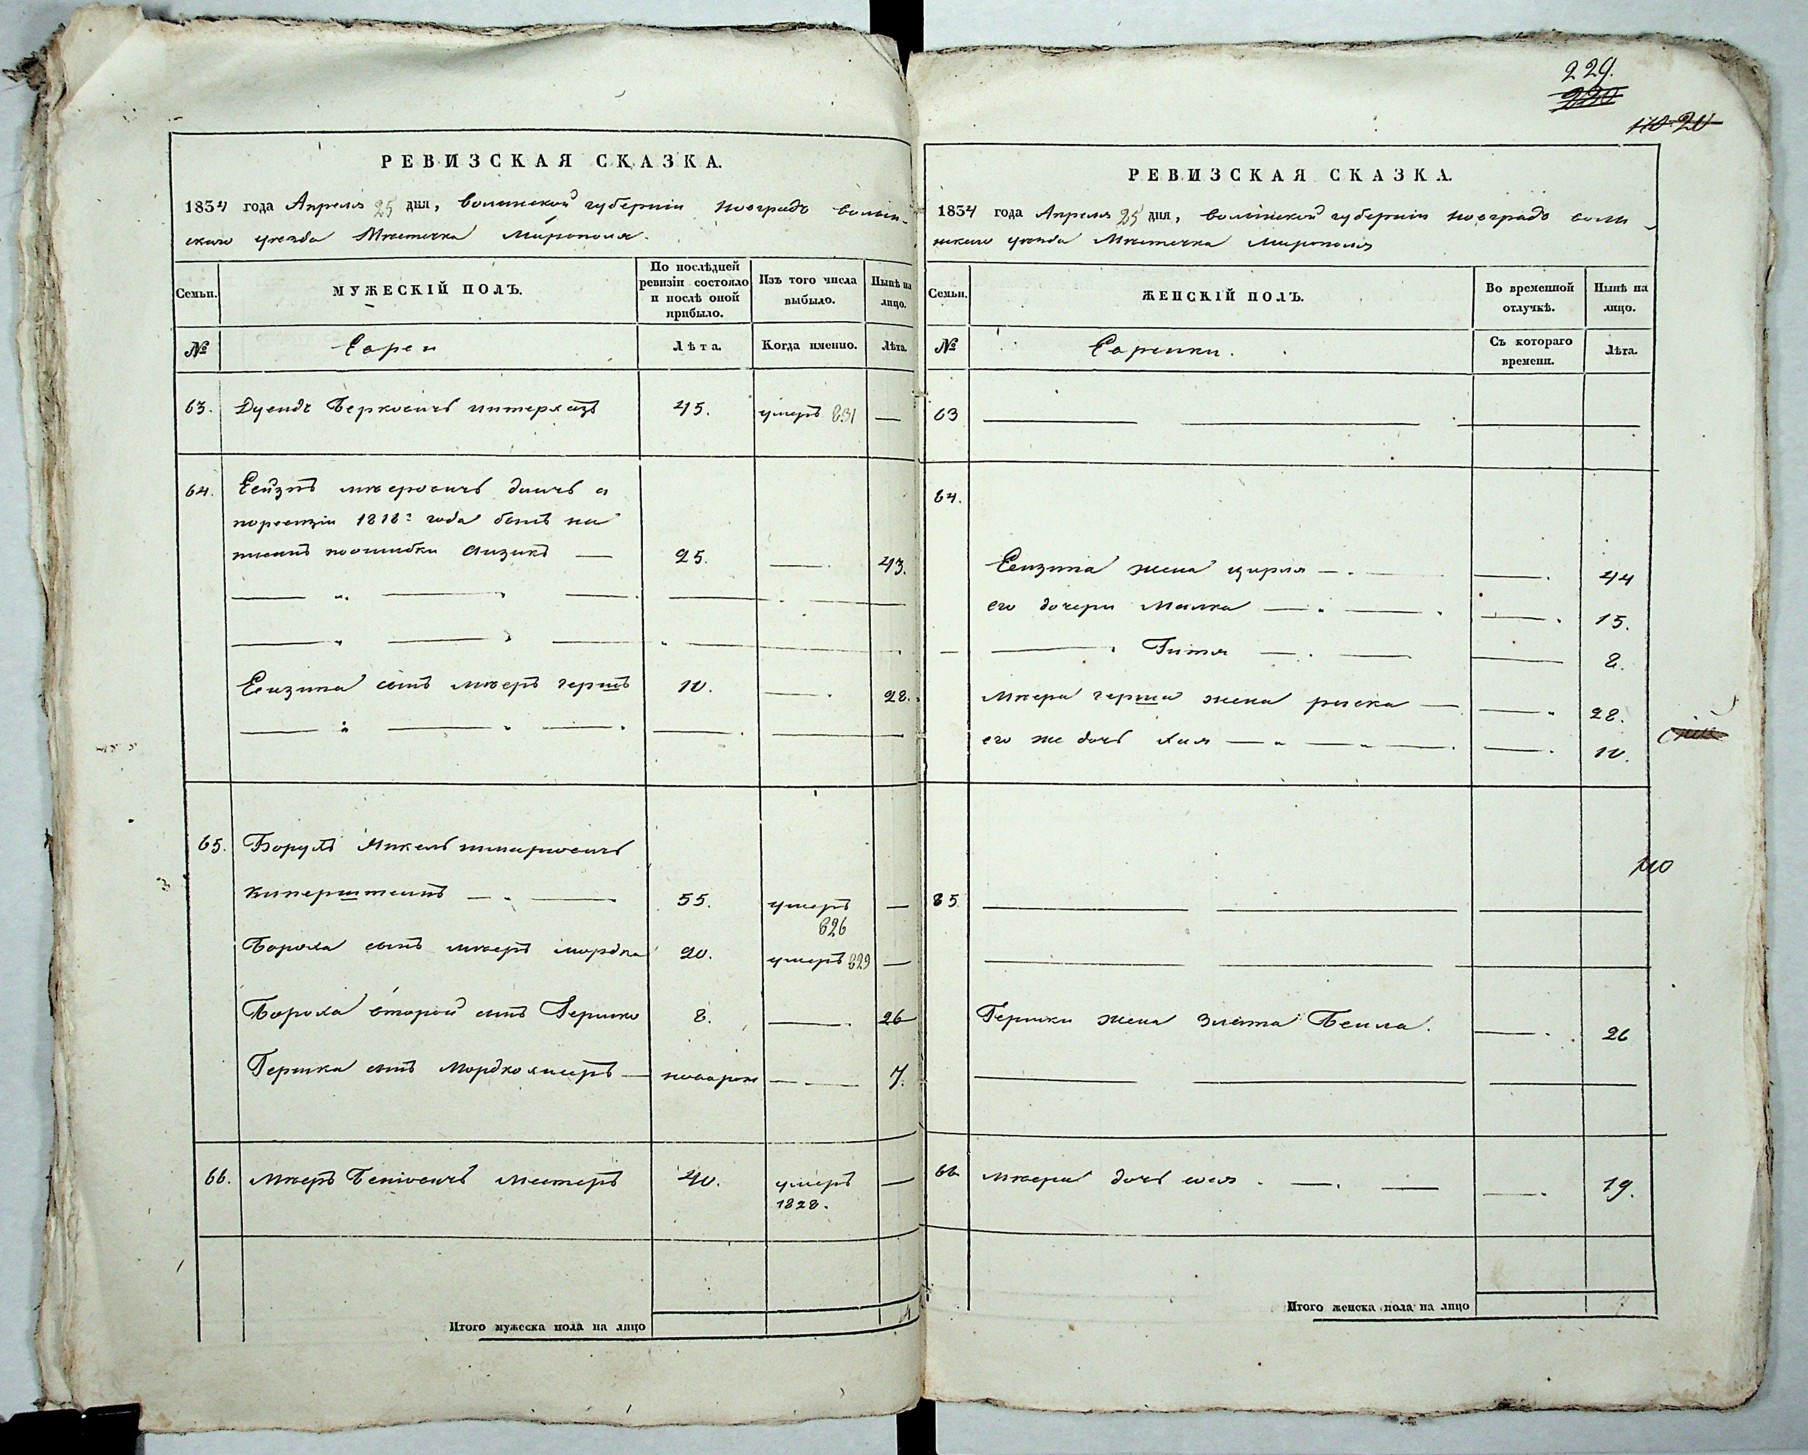 РЕВИЗСКАЯ СКАЗКА.
1834 года Апреля 25 дня, Волынской губернии Новградъ Волын-
скаго уезда Мѣстечка Мирополя.
Семьи.
МУЖЕСКІЙ ПОЛЪ.
По послѣдней ревизіи состояло и послѣ оной прибыло.
Изъ того числа выбыло.
Нынѣ на лицо.
№
Евреи
Лѣта.
Когда именно.
Лѣта.
63. Берковичъ 45. умеръ 831 —
64.
поревизіи 1818 года былъ на
писанъ поошибки Айзикъ — 25. — 43.
сынъ Мѣеръ Гершъ 10. — 28.
65. Борухъ Янкель
Киперштеинъ 55. умеръ 826 —
Боруха сынъ Мѣеръ Мордка 20. умеръ 829 —
Боруха второй сынъ Гершко 8. — 26
Гершка сынъ Мордко — 7.
66. Мѣеръ 40. умеръ 1828. —
Итого мужеска пола на лицо
229.
220
РЕВИЗСКАЯ СКАЗКА.
1834 года Апреля 25 дня, Волынской губерніи Новградъ Волы-
нскаго уезда Мѣстечка Мирополя
Семьи.
ЖЕНСКІЙ ПОЛЪ.
Во временной отлучкѣ.
Нынѣ на лицо.
№
Еврейки.
Съ котораго времени.
Лѣта.
63
64.
жена Цирля — 44
его дочери Малка — 15.
Гитля — 8.
Мѣера Герша жена Риска — 28.
его же дочь Хая — 10.
65
Гершки жена Злата Бейла. — 26
66 Мѣера дочь — 19.
Итого женска пола на лицо